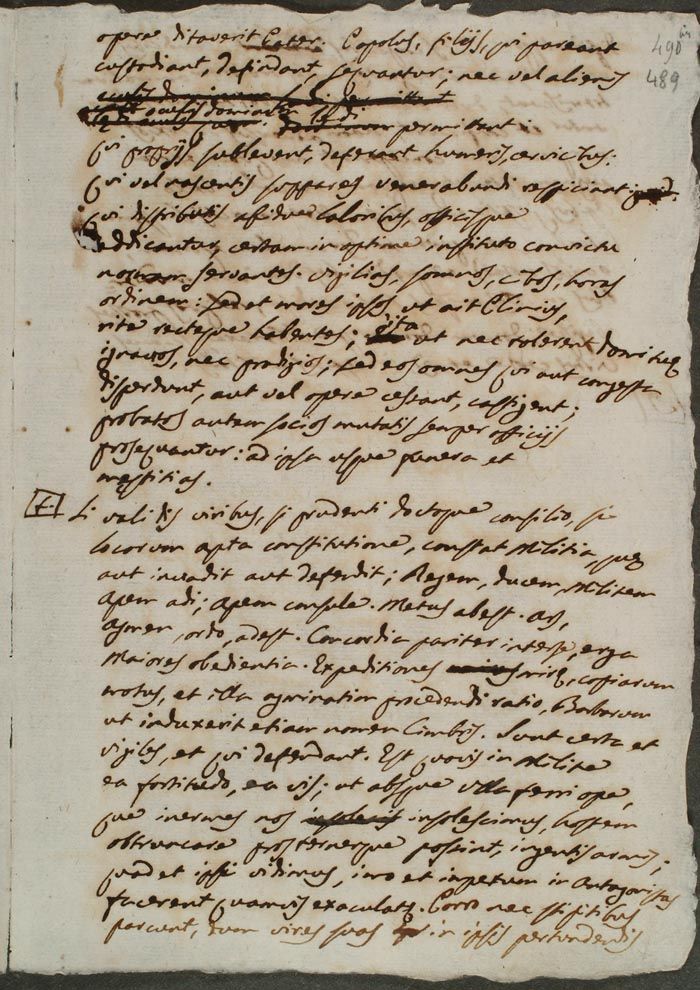 490 bis
489
opere ditaverit Pater. Populos, filijs, qui pareant
custodiant, defendant, sequantur; nec vel alienis
permittant:
qui proprijs sublevent, deferant humeris, cervicibus:
qui vel nascentis suppares venerabundi respiciant;
qui distributis assidue laboribus, officijsque
addicantur, certam in optime instituto convictu
servantes vigilias, somnos, cibos, horas
ordinem: sed et mores ipsos, ut ait Plinius,
rite recteque habentes; ita ut nec tolerent domi
ignavos, nec prodigos; sed eos omnes qui aut congesta
disperdunt, aut vel opere cessant, castigent;
probatos autem socios mutatis semper officijs
prosequantur: ad ipsa usque funera et
mestitias.
Si validis viribus, si prudenti doctoque consilio, si
locorum apta constitutione, constat Militia, quę
aut invadit aut defendit; Regem, ducem, Militem
apem adi; apem consule. Metus abest. ars,
agmen, ordo, adest. Concordia pariter inter se, erga
Maiores obedientia. Expeditiones mirę, copiarum
motus, et illa agminatim procedendi ratio, Barbarum
ut induxerit etiam nomen Cimbris. Sunt certa et
vigiles, et qui defendant. Est quovis in Milite
ea fortitudo, ea vis; ut absque ulla ferri ope,
que inermes nos insolescimus, hostem
obtruncare prosternerque possint, ingentis armis;
quod et ipsi vidimus, imo et impetum in Antagonistas
facerent quamvis exaculatę. Porro nec stipitibus
parcunt, dum vires suas in ipsis pertundendis